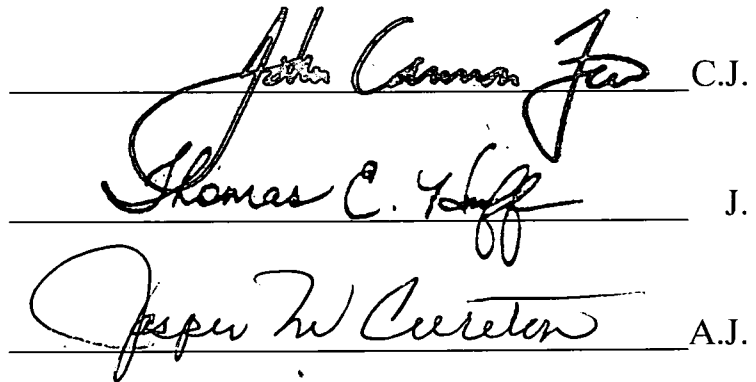 John Cannon Few C.J.
Thomas E. Huff J.
Jasper M Cureton A.J.